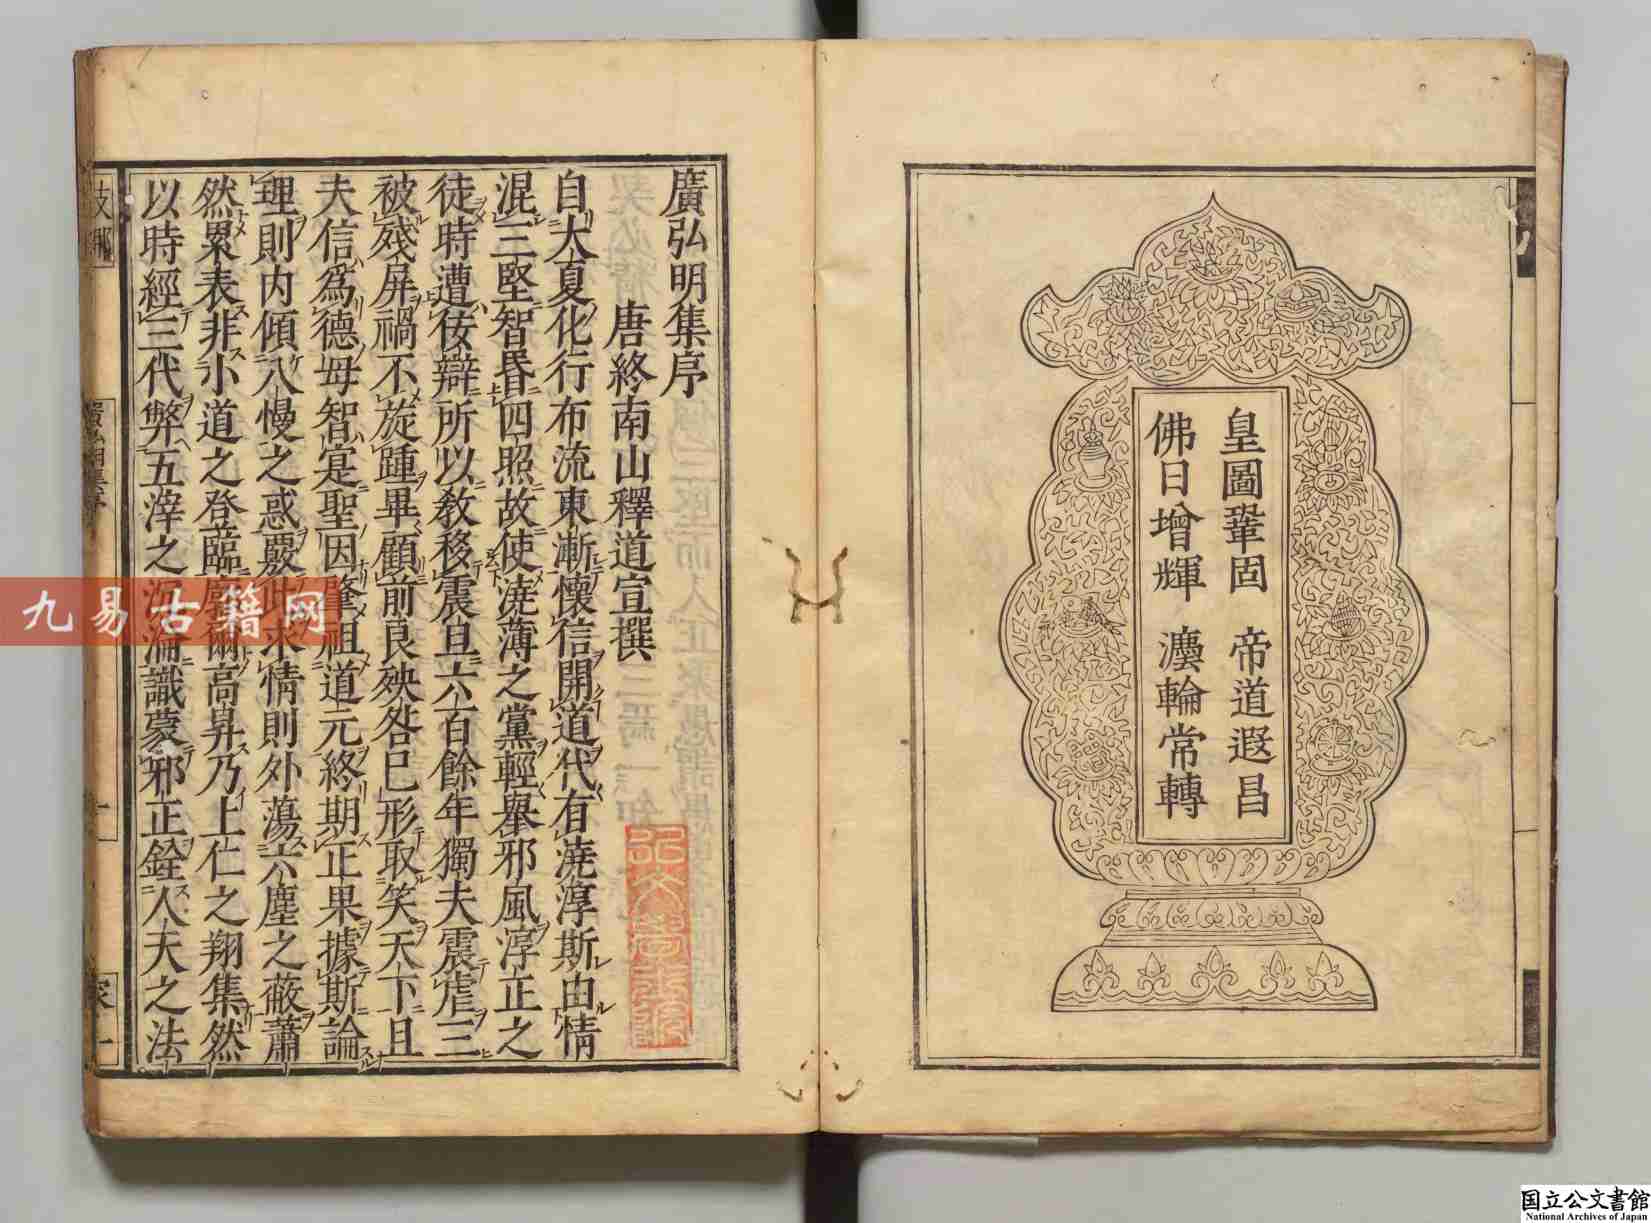 皇圖鞏固　帝道遐昌
佛日增輝　灋輪常轉
廣弘明集序
唐終南山釋道宣撰
自大夏化行布流東漸懷信開道代有澆淳斯由情
混三堅智昏四照故使澆薄之黨輕舉邪風淳正之
徒時遭佞辯所以教移震旦六百餘年獨夫震虐三
被殘屏禍不旋踵畢顧前良殃咎已形取笑天下且
夫信爲德母智寔聖因肇祖道元終期正果據斯論
理則内傾八慢之惑覈此求情則外蕩六塵之蔽蕭
然累表非小道之登臨廓爾高昇乃上仁之翔集然
以時經三代弊五滓之沉淪識蒙邪正銓人天之法
支那
廣弘明集序
一
家一
九易古籍网
国立公文書館
National Archives of Japan